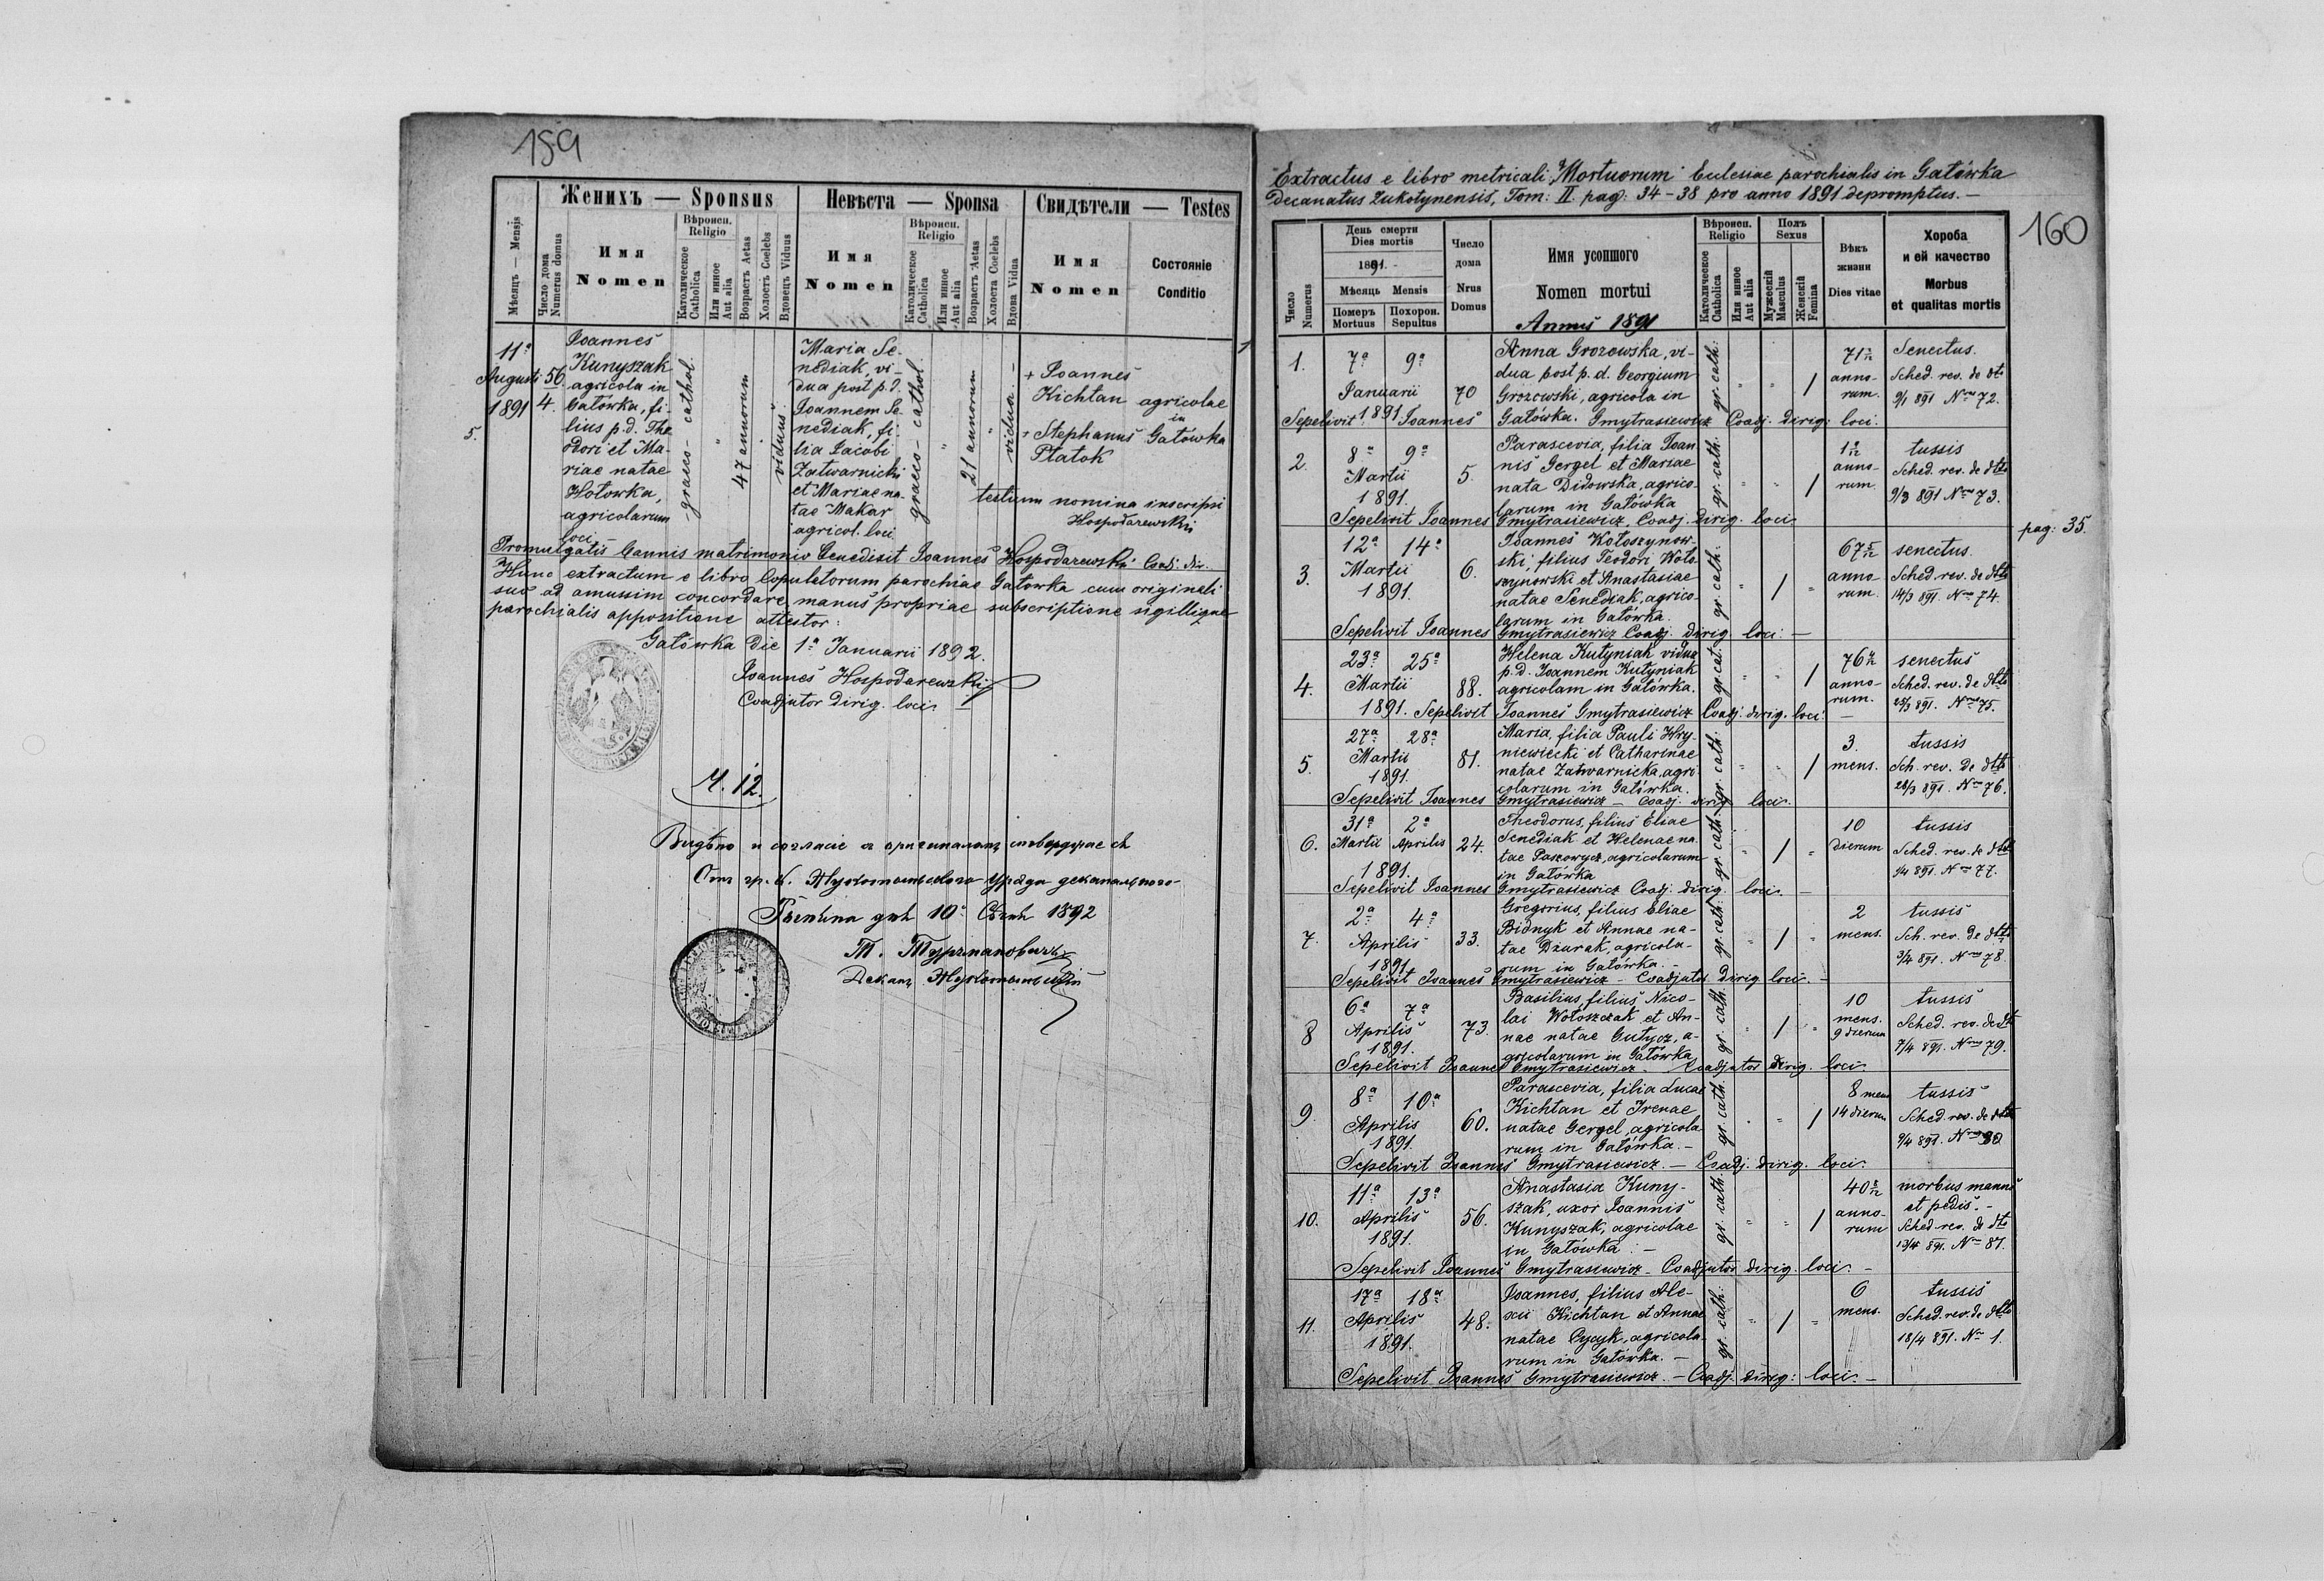 159
Женихъ — Sponsus
Невѣста — Sponsa
Свидѣтели — Testes
Мѣсяцъ — Mensis
Число дома
Numerus domus
Имя
Nomen
Вѣроисп.
Religio
Католическое
Catholica
Или инное
Aut alia
Возрастъ Aetas
Холостъ Coelebs
Вдовецъ Viduus
Имя
Nomen
Вѣроисп.
Religio
Католическое
Catholica
Или инное
Aut alia
Возрастъ Aetas
Холоста Coelebs
Вдова Vidua
Имя
Nomen
Состояніе
Conditio
5.
11ª
Augusti
1891
56
4.
Joannes
Kunyszak
agricola in
Gatówka, fi-
lius p.d. The
odori et Ma-
riae natae
Hotowka,
agricolarum
loci
graeco-cathol.
"
47 annorum
viduus.
Maria Se-
nediak, vi-
dua post p.d.
Joannem Se
nediak, fi-
lia Jacobi
Zatwarnicki
et Mariae na-
tae Makar
agricol. loci
graeco-cathol.
"
21 annorum
"
vidua. —
+ Joannes
Kichtan agricolae
in
+ Stephanus Gatówka
Ptatok
testium nomina inscripsi
Hospodarewski
Promulgatis bannis matrimonio benedixit Joannes Hospodarewski Coadj. dir.
Hunc extractum e libro Copulatorum parochiae Gatówka cum originali
suo ad amussim concordare, manus propriae subscriptione sigillique
parochialis appositione attestor:
Gatówka die 1ª Januarii 1892.
Joannes Hospodarewski
Coadjutor dirig. loci. —
Ч. 12.
Видѣно и согласіе съ оригиналомъ
Отъ гр. к. Жукотынского уряда деканального
дня 10. Сѣчня 1892
Т. Турчмановичъ
Деканъ Жукотынскій
Extractus e libro metricali Mortuorum Ecclesiae parochialis in Gatówka
Decanatus Żukotynensis, Tom: II. pag: 34-38 pro anno 1891 depromptus. —
160
Число
Numerus
День смерти
Dies mortis
1891. -
Мѣсяць Mensis
Померъ
Mortuus
Похорон.
Sepultus
Число
дома
Nrus
Domus
Имя усопшого
Nomen mortui
Annus 1891
Вѣроисп.
Religio
Католическое
Catholica
Или инное
Aut alia
Полъ
Sexus
Мужескій
Masculus
Женскій
Femina
Вѣкъ
жизни
Dies vitae
Хороба
и ей качество
Morbus
et qualitas mortis
1. 7ª 9ª Januarii 1891 70
Anna Grozowska, vi-
dua post p. d. Georgium
Grozowski, agricola in
Gatówka.
gr. cath. " " 1
71 annorum.
Senectus.
Sched. rev. de dto
9/1 891 Nro 72.
Sepelivit Joannes Gmytrasiewicz Coadj. dirig. loci.
2. 8ª 9ª Martii 1891. 5.
Parascevia, filia Joan
nis Gergel et Mariae
nata Didowska, agrico-
larum in Gatówka
gr. cath. " " 1
annorum.
tussis
Sched. rev. de dto
9/3 891 Nro 73.
Sepelivit Joannes Gmytrasiewicz, Coadj. dirig. loci.
pag: 35.
3. 12ª 14ª Martii 1891. 6.
Joannes Wotoszynow-
ski, filius Teodori Woto-
szynowski et Anastasiae
natae Senediak, agrico-
larum in Gatówka.
gr. cath. " 1 "
67 annorum.
senectus.
Sched. rev. de dto
14/3 891. Nro 74.
Sepelivit Joannes Gmytrasiewicz Coadj. dirig. loci. —
4. 23ª 25ª Martii 1891. 88.
Helena Kutyniak vidua
p.d. Joannem Kutyniak
agricolam in Gatówka.
gr. cat. " " 1
76 annorum.
senectus
Sched. rev. de dto
25/3 891. Nro 75.
Sepelivit Joannes Gmytrasiewicz Coadj. dirig. loci. —
5. 27ª 28ª Martii 1891. 81.
Maria, filia Pauli Hry-
niewiecki et Catharinae
natae Zatwarnicka, agri-
colarum in Gatówka.
gr. cath. " " 1
3. mens.
tussis
Sch. rev. de dto
28/3 891. Nro 76.
Sepelivit Joannes Gmytrasiewicz — Coadj. dirig. loci.
6. 31ª Martii 2ª Aprilis 1891. 24.
Theodorus, filius Eliae
Senediak et Helenae na-
tae Paszowycz, agricolarum
in Gatówka
gr. cath. " 1 "
10 dierum
tussis
Sched. rev. de dto
891. Nro 77.
Sepelivit Joannes Gmytrasiewicz Coadj. dirig. loci. —
7. 2ª 4ª Aprilis 1891 33.
Gregorius, filius Eliae
Bidnyk et Annae na-
tae Dzurak, agricola-
rum in Gatówka. —
gr. cath. " 1 "
2 mens.
tussis
Sch. rev. de dto
3/4 891. Nro 78.
Sepelivit Joannes Gmytrasiewicz — Coadjutor dirig. loci. —
8 6ª 7ª Aprilis 1891. 73.
Basilius, filius Nico-
lai Wotoszczak et An-
nae natae Gutycz, a-
gricolarum in Gatówka
gr. cath. " 1 "
10 mens. 9 dierum
tussis
Sched. rev. de dto
7/4 891. Nro 79.
Sepelivit Joannes Gmytrasiewicz. Coadjutor dirig. loci.
9. 8ª 10ª Aprilis 1891. 60.
Parascevia, filia Lucae
Kichtan et Irenae
natae Gergel, agricola
rum in Gatówka. —
gr. cath. " " 1
8 mens 14 dierum
tussis
Sched rev. de dto
9/4 891. Nro 80
Sepelivit Joannes Gmytrasiewicz. — Coadj. dirig. loci.
10. 11ª 13ª Aprilis 1891. 56.
Anastasia Kuny-
szak, uxor Joannis
Kunyszak, agricolae
in Gatówka: —
gr. cath. " " 1
40 annorum
morbus manus
et pedis. —
Sched. rev. de dto
13/4 891. Nro 81.
Sepelivit Joannes Gmytrasiewicz — Coadjutor dirig. loci. —
11. 17ª 18ª Aprilis 1891. 48.
Joannes, filius Ale-
xii Kichtan et Annae
natae Pycyk, agricola-
rum in Gatówka. —
gr. cath. " 1 "
6 mens.
tussis
Sched. rev. de dto
18/4 891. Nro 1.
Sepelivit Joannes Gmytrasiewicz. — Coadj. dirig: loci. —